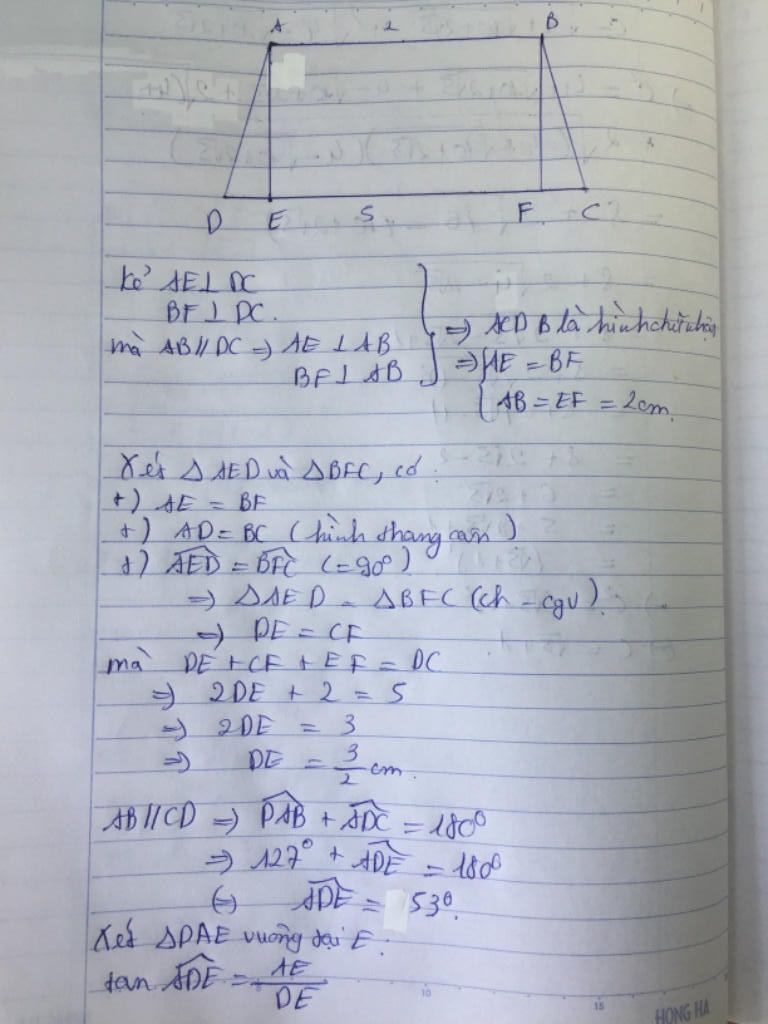 A 2 B
D E 5 F C
Kẻ AE ⊥ DC
BF ⊥ DC.
mà AB // DC ⇒ AE ⊥ AB
BF ⊥ AB
⇒ ACD B là hình chữ nhật
⇒ { AE = BF
AB = EF = 2cm.
Xét ΔAED và ΔBFC, có:
+) AE = BF
+) AD = BC (hình thang cân)
+) \widehat{AED} = \widehat{BFC} (= 90°)
⇒ ΔAED = ΔBFC (ch - cgv).
⇒ DE = CF
mà DE + CF + EF = DC
⇒ 2DE + 2 = 5
⇒ 2DE = 3
⇒ DE = 3/2 cm.
AB // CD ⇒ \widehat{DAB} + \widehat{ADC} = 180°
⇒ 127° + \widehat{ADE} = 180°
(-) \widehat{ADE} = 53°.
Xét ΔDAE vuông tại E:
tan \widehat{ADE} = AE/DE
10 15 HONG HA